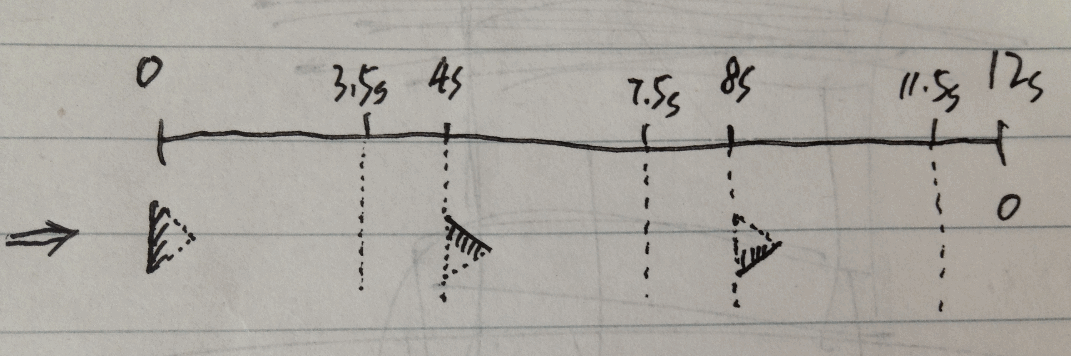 0 3.5s 4s 7.5s 8s 11.5s 12s
0